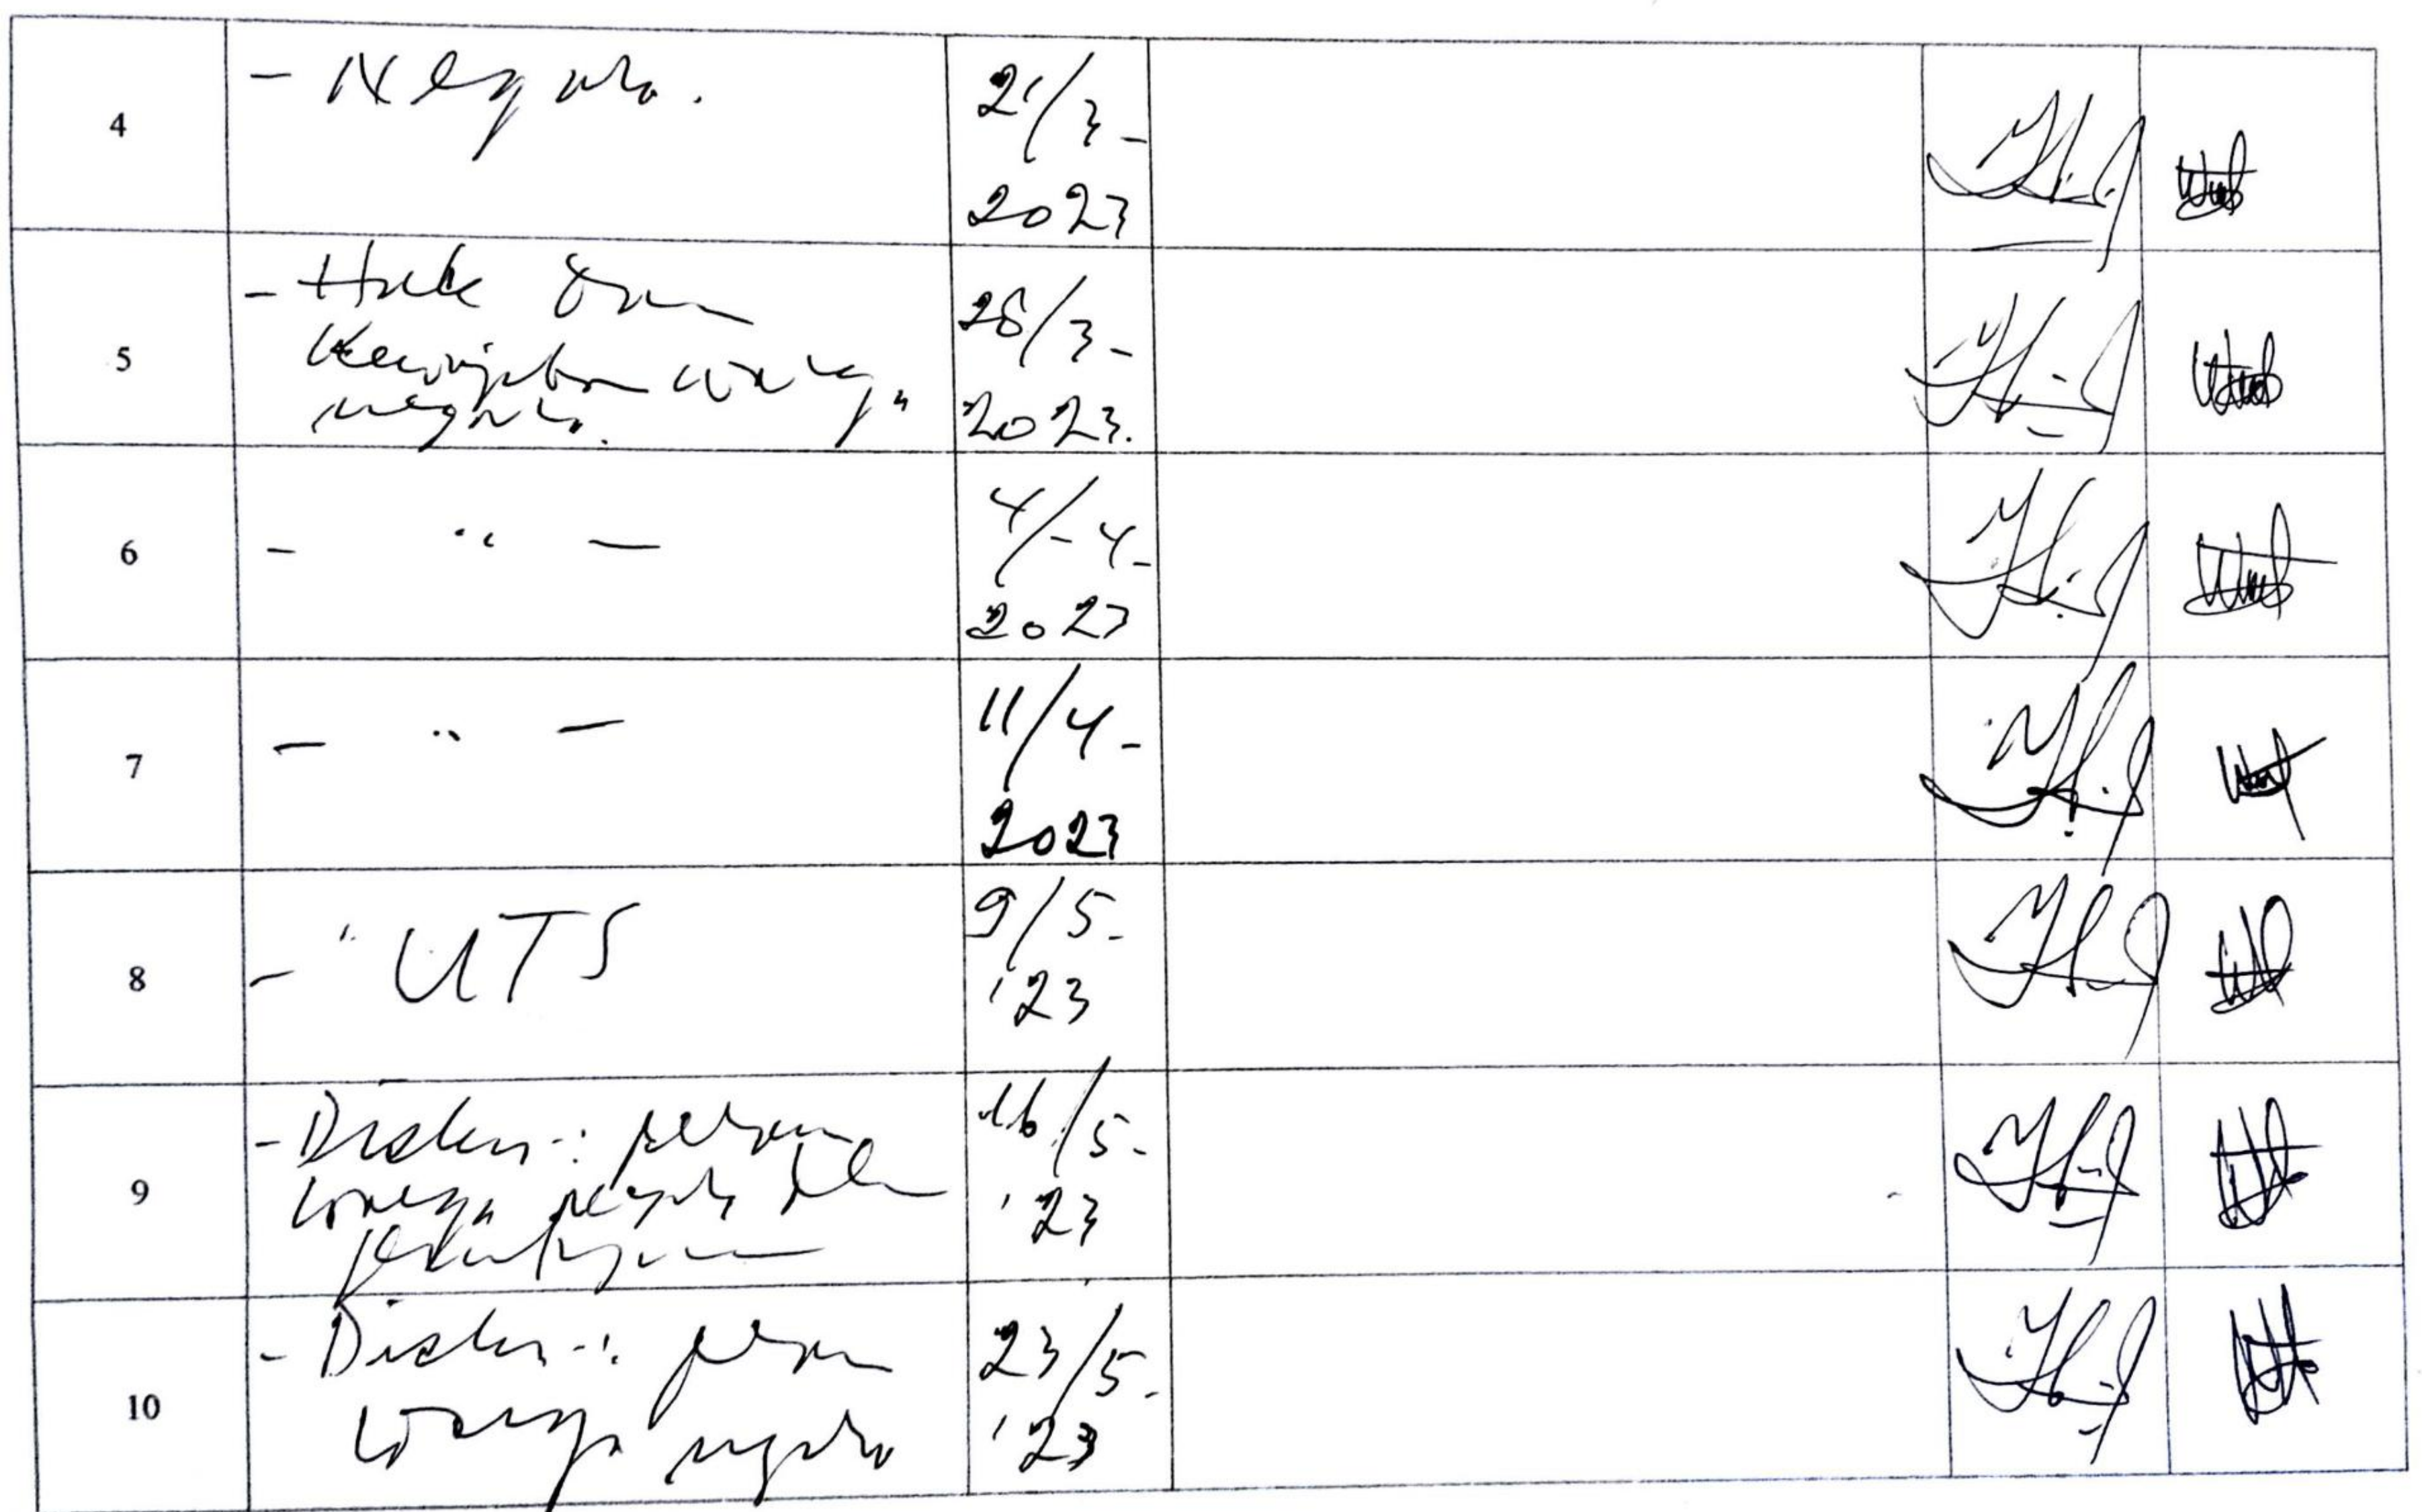 4
- Negara.
21/3-
2023
5
- Hak dan
Kewajiban warga
negara.
28/3-
2023.
6
- " -
4/-4-
2023
7
- " -
11/4-
2023
8
- " UTS
9/5-
'23
9
- Diskusi: peran
warga negara dlm
16/5-
'23
10
- Diskusi: peran
warga negara
23/5-
'23